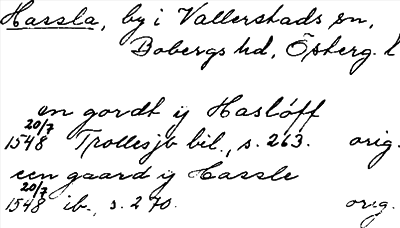 Hassla, by i Vallerstads sn,
Bobergs hd, Östergl.
en gordt ij Haslóff
20/7
1548 Trollesjb bil., s. 263. orig.
een gaard ij Hassle
20/7
1548 ib., s. 270. orig.